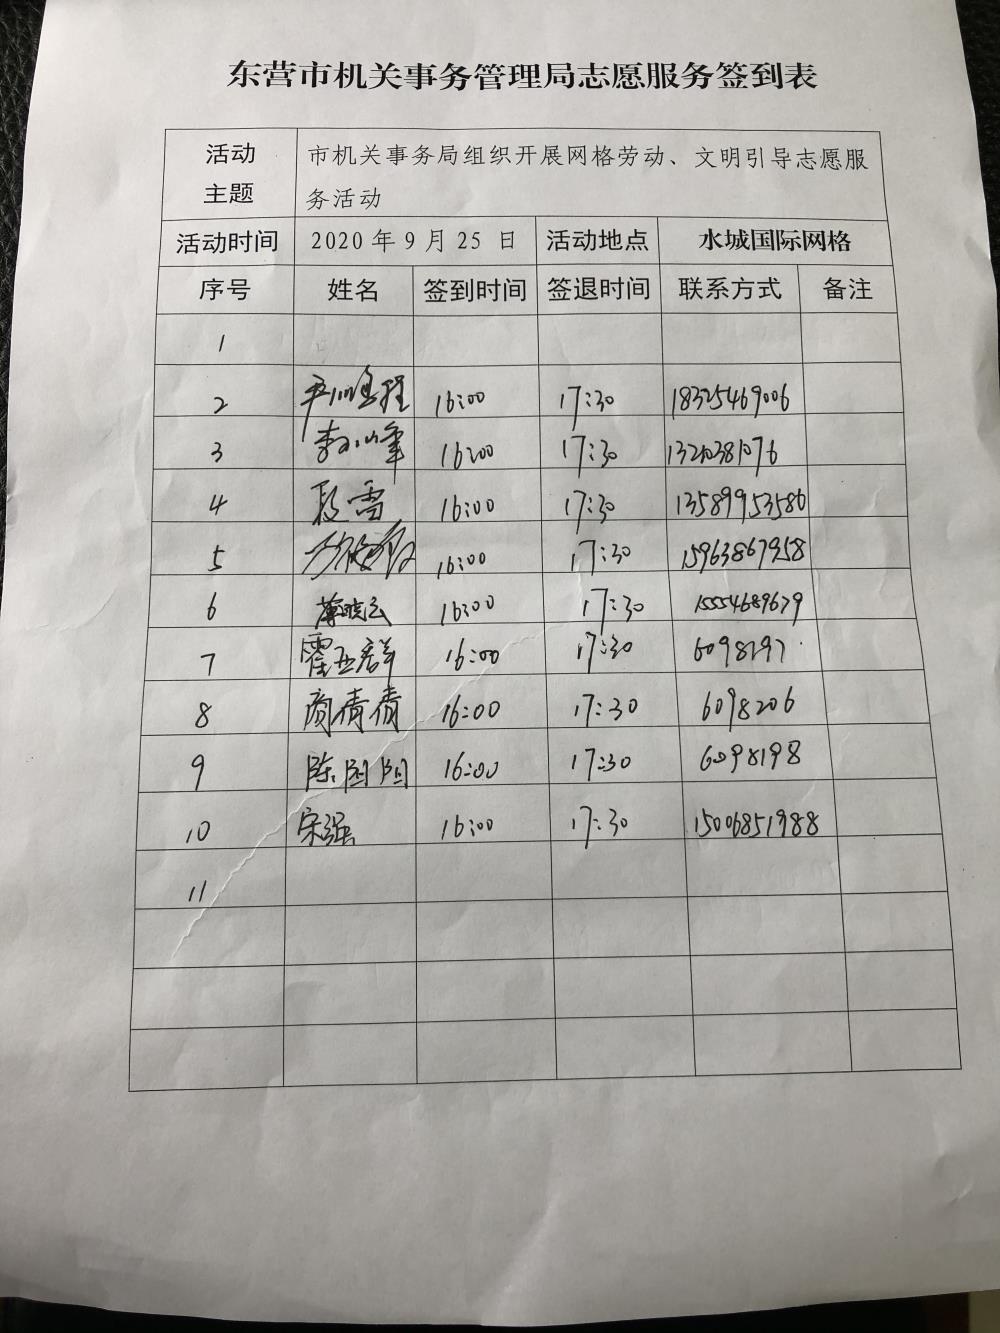 东营市机关事务管理局志愿服务签到表
活动主题 市机关事务局组织开展网格劳动、文明引导志愿服
务活动
活动时间 2020 年 9 月 25 日 活动地点 水城国际网格
序号 姓名 签到时间 签退时间 联系方式 备注
1
2 16:00 17:30 18325469006
3 16:00 17:30
4 段雪 16:00 17:30 13589953586
5 16:00 17:30 15963867958
6 薄晓云 16:00 17:30 15554689679
7 霍亚群 16:00 17:30 6098297
8 颜倩倩 16:00 17:30 6098206
9 陈团团 16:00 17:30 6098198
10 宋强 16:00 17:30 15006851988
11